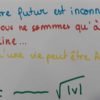 re futur est inconn
ous ne sommes qu'à
ine...
une vie peut être
√|v|